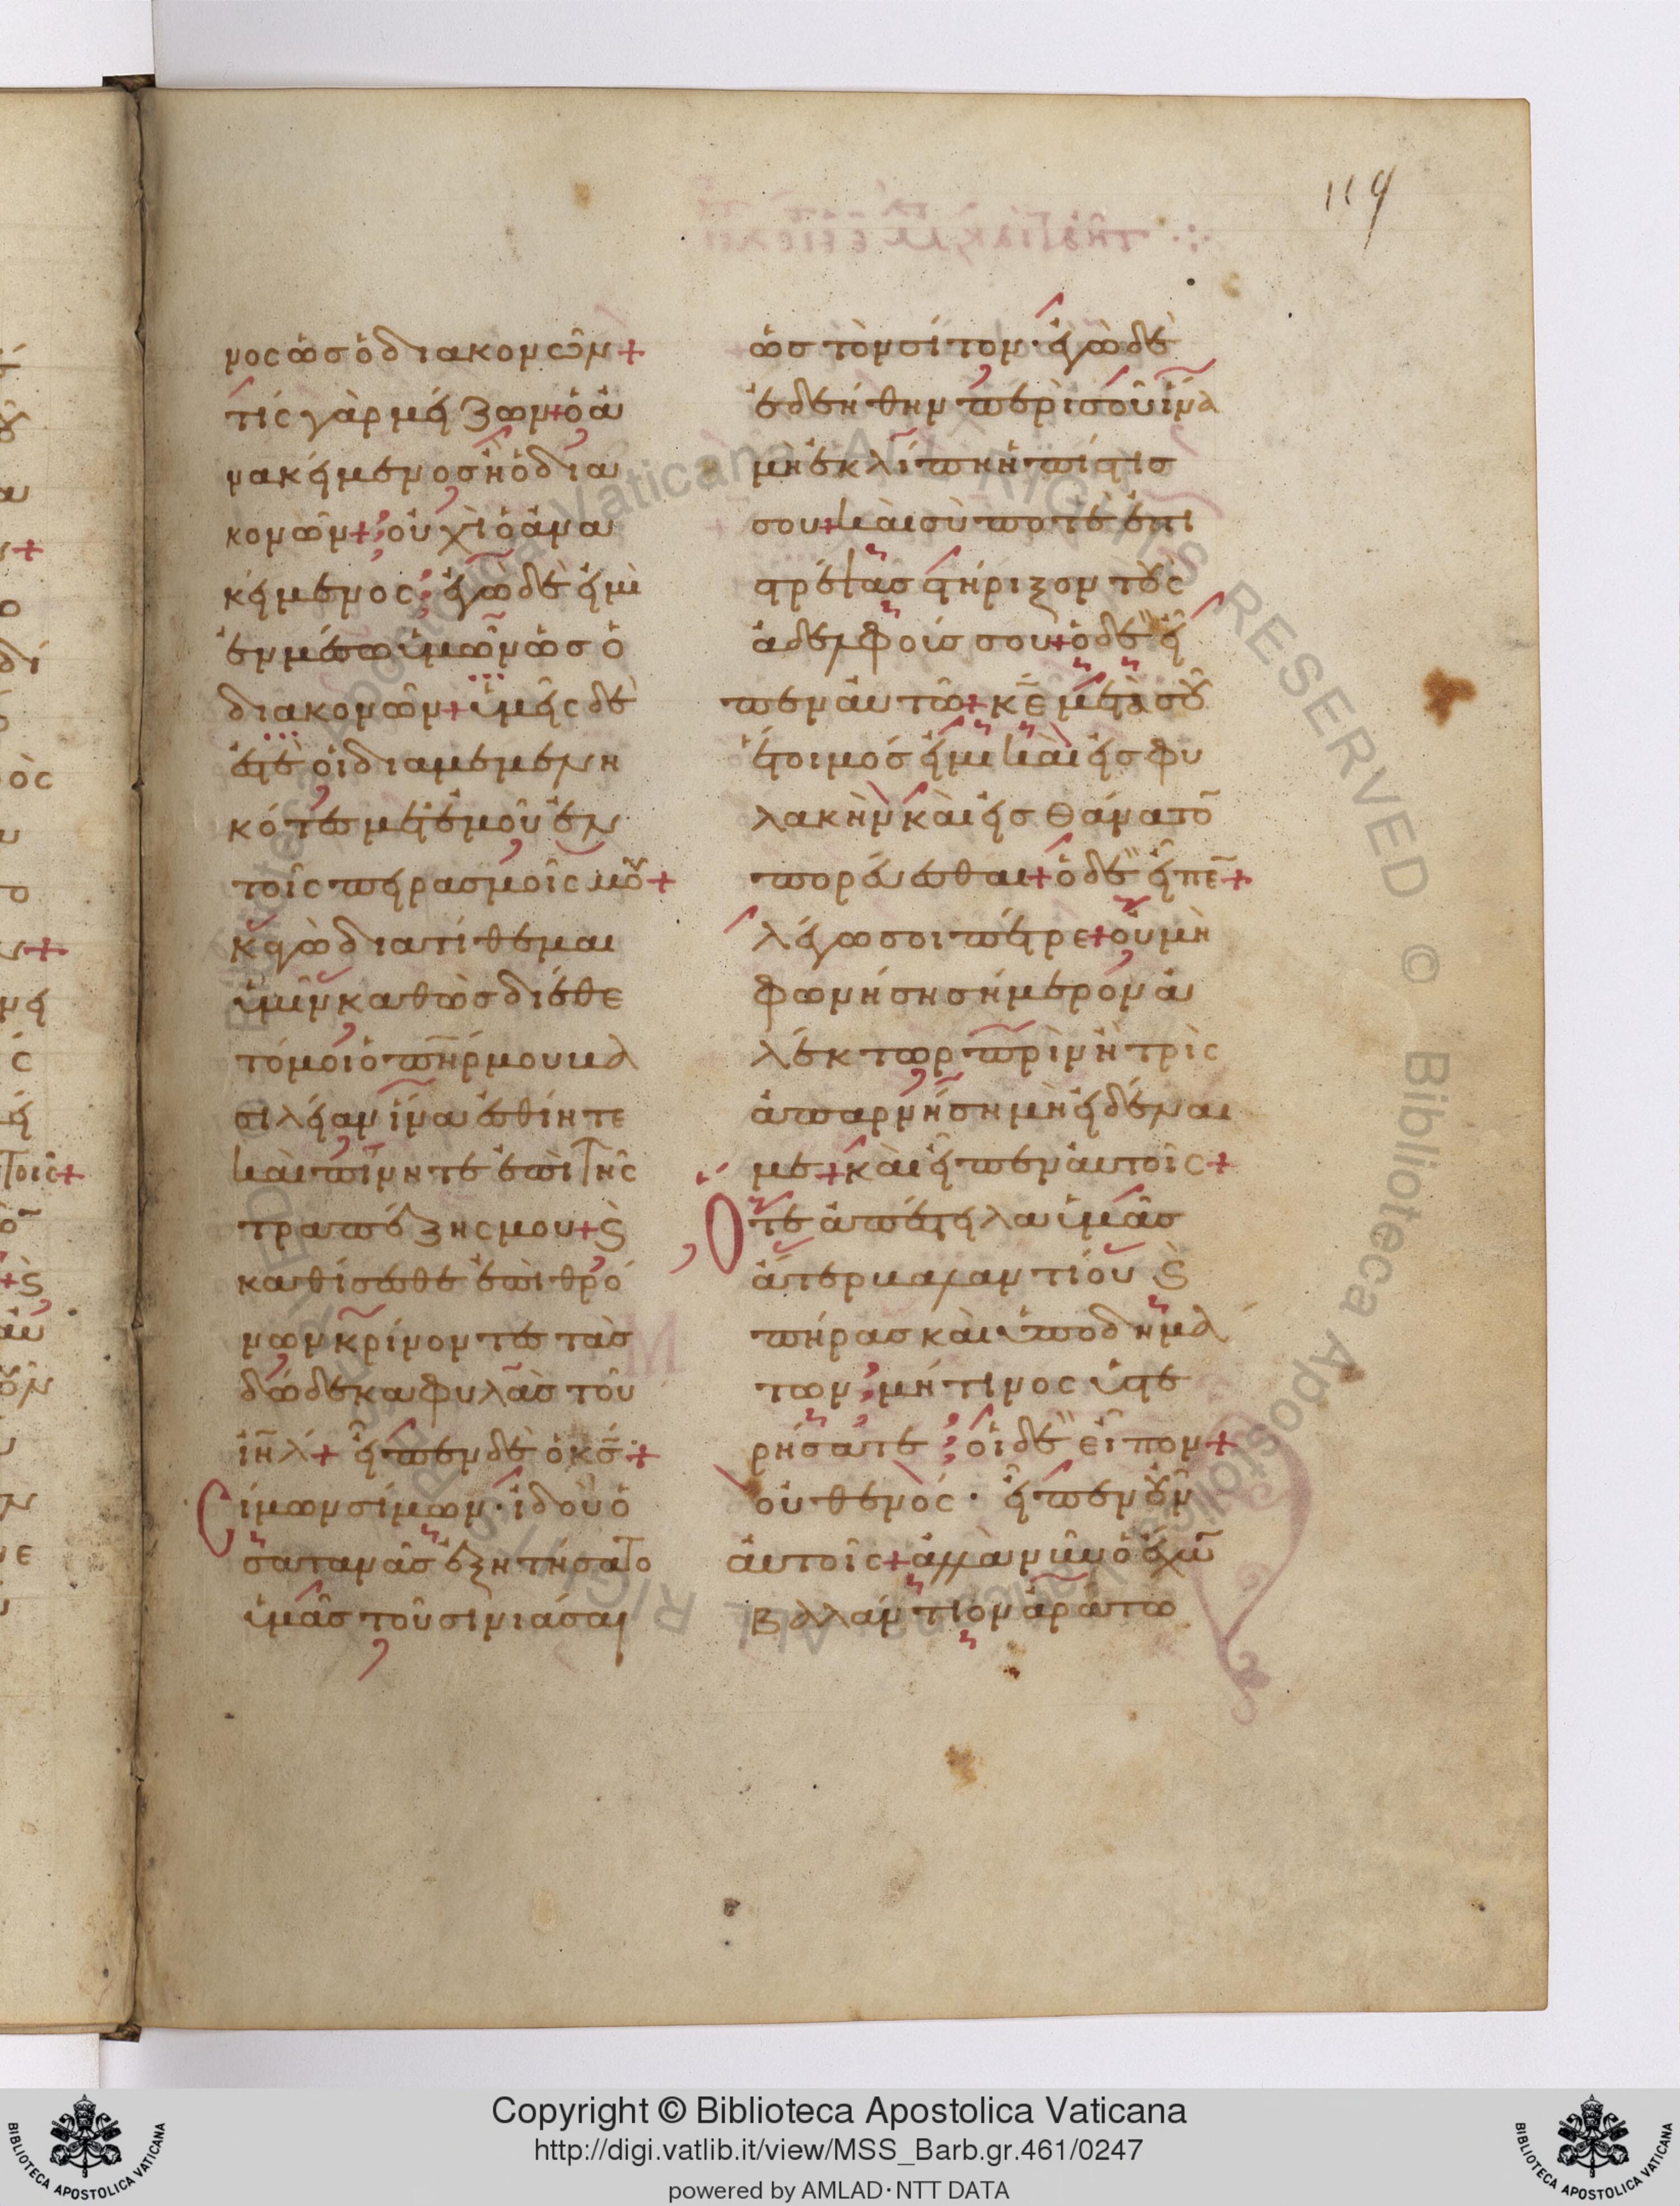 119
νος ὡς ὁ διακονῶν+
τίς γὰρ μείζων+ὁ ἀ
νακείμενος ἢ ὁ δια
κονῶν+; οὐχὶ ὁ ἀνα
κείμενος; ἐγὼ δὲ εἰμὶ
ἐν μέσω ὑμῶν ὡς ὁ
διακονῶν+ὑμεῖς δὲ
ἐστὲ οἱ διαμεμενη
κότες μετ' ἐμοῦ ἐν
τοῖς πειρασμοῖς μου+
κἀγὼ διατίθεμαι
ὑμῖν καθὼς διέθε
τό μοι ὁ πηρ μου βα
σιλείαν ἵνα ἐσθίητε
καὶ πίνητε ἐπὶ τῆς
τραπέζης μου+ϗ
καθίσεσθε ἐπὶ θρό
νων κρίνοντες τὰς
δώδεκα φυλὰς τοῦ
ιηλ+ εἶπεν δὲ ὁ κς+
Σίμων σίμων· ἰδοὺ ὁ
σατανᾶς ἐξητήσατο
ὑμᾶς τοῦ σινιάσαι
ὡς τὸν σίτον· ἐγὼ δὲ
ἐδεήθην περὶ σοῦ ἵνα
μὴ ἐκλίπη ἡ πίστις
σου+καὶ σὺ ποτὲ ἐπι
στρέψας στήριξον τοὺς
ἀδελφούς σου+ὁ δὲ εἶ
πεν αὐτῶ+κε μετὰ σοῦ
ἕτοιμός εἰμι καὶ εἰς φυ
λακὴν καὶ εἰς θάνατον
πορεύεσθαι+ὁ δὲ εἶπε+
λέγω σοι πέτρε+οὐ μὴ
φωνήση σήμερον ἀ
λέκτωρ πρὶν ἢ τρὶς
ἀπαρνήση μὴ εἰδέναι
με+καὶ εἶπεν αὐτοῖς+
Ὅτε ἀπέστειλα ὑμᾶς
ἄτερ βαλαντίου ϗ
πήρας καὶ ὑποδημά
των; μή τινος ὑστε
ρήσατε; οἱ δὲ εἶπον+
οὐθενός· εἶπεν οὖν
αὐτοῖς+ἀλλὰ νῦν ὁ ἔχων
βαλλάντιον ἀράτω
Copyright © Biblioteca Apostolica Vaticana
http://digi.vatlib.it/view/MSS_Barb.gr.461/0247
powered by AMLAD·NTT DATA